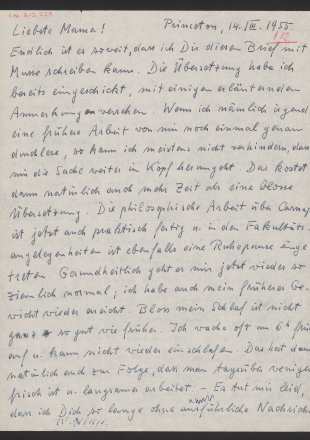 Princeton, 14./III. 1955
112
Liebste Mama!
Endlich ist es soweit, dass ich Dir diesen Brief mit
Musse schreiben kann. Die Übersetzung habe ich
bereits eingeschickt, mit einigen erläuternden
Anmerkungen versehen. Wenn ich nämlich irgend
eine frühere Arbeit von mir noch einmal genau
durchlese, so kann ich meistens nicht verhindern, dass
mir die Sache weiter im Kopf herumgeht. Das kostet
dann natürlich auch mehr Zeit als eine blosse
Übersetzung. Die philosophische Arbeit über Carnap
ist jetzt auch praktisch fertig u. in den Fakultäts-
angelegenheiten ist ebenfalls eine Ruhepause einge
treten. Gesundheitlich geht es mir jetzt wieder so
ziemlich normal; ich habe auch mein früheres Ge-
wicht wieder erreicht. Bloss mein Schlaf ist nicht
ganz so gut wie früher. Ich wache oft um 6h früh
auf u. kann nicht wieder einschlafen. Das hat dann
natürlich auch zur Folge, dass man tagsüber weniger
frisch ist u. langsamer arbeitet. – Es tut mir leid,
dass ich Dich so lange ohne ausführliche Nachricht